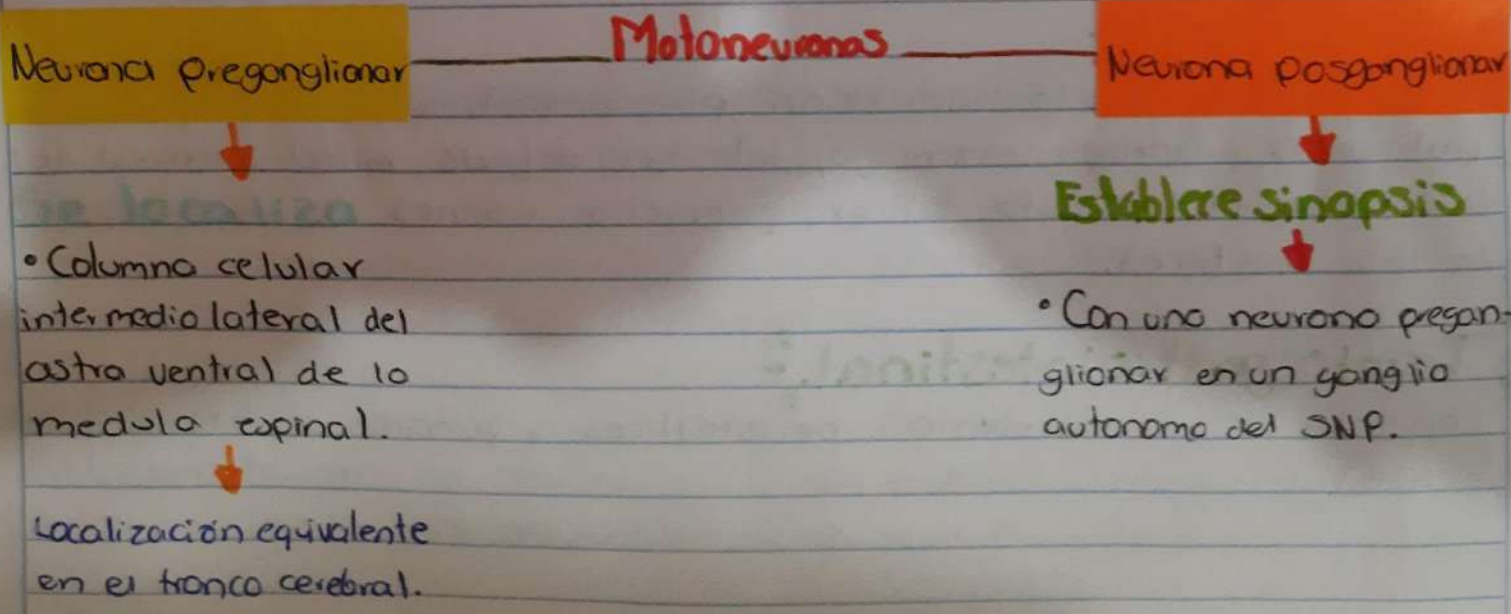 Motoneuronas
Neurona preganglionar
Se localiza
• Columna celular
intermedio lateral del
astra ventral de la
medula espinal.
Localización equivalente
en el tronco cerebral.
Neurona posganglionar
Establece sinapsis
• Con una neurona pregan-
glionar en un ganglio
autonomo del SNP.